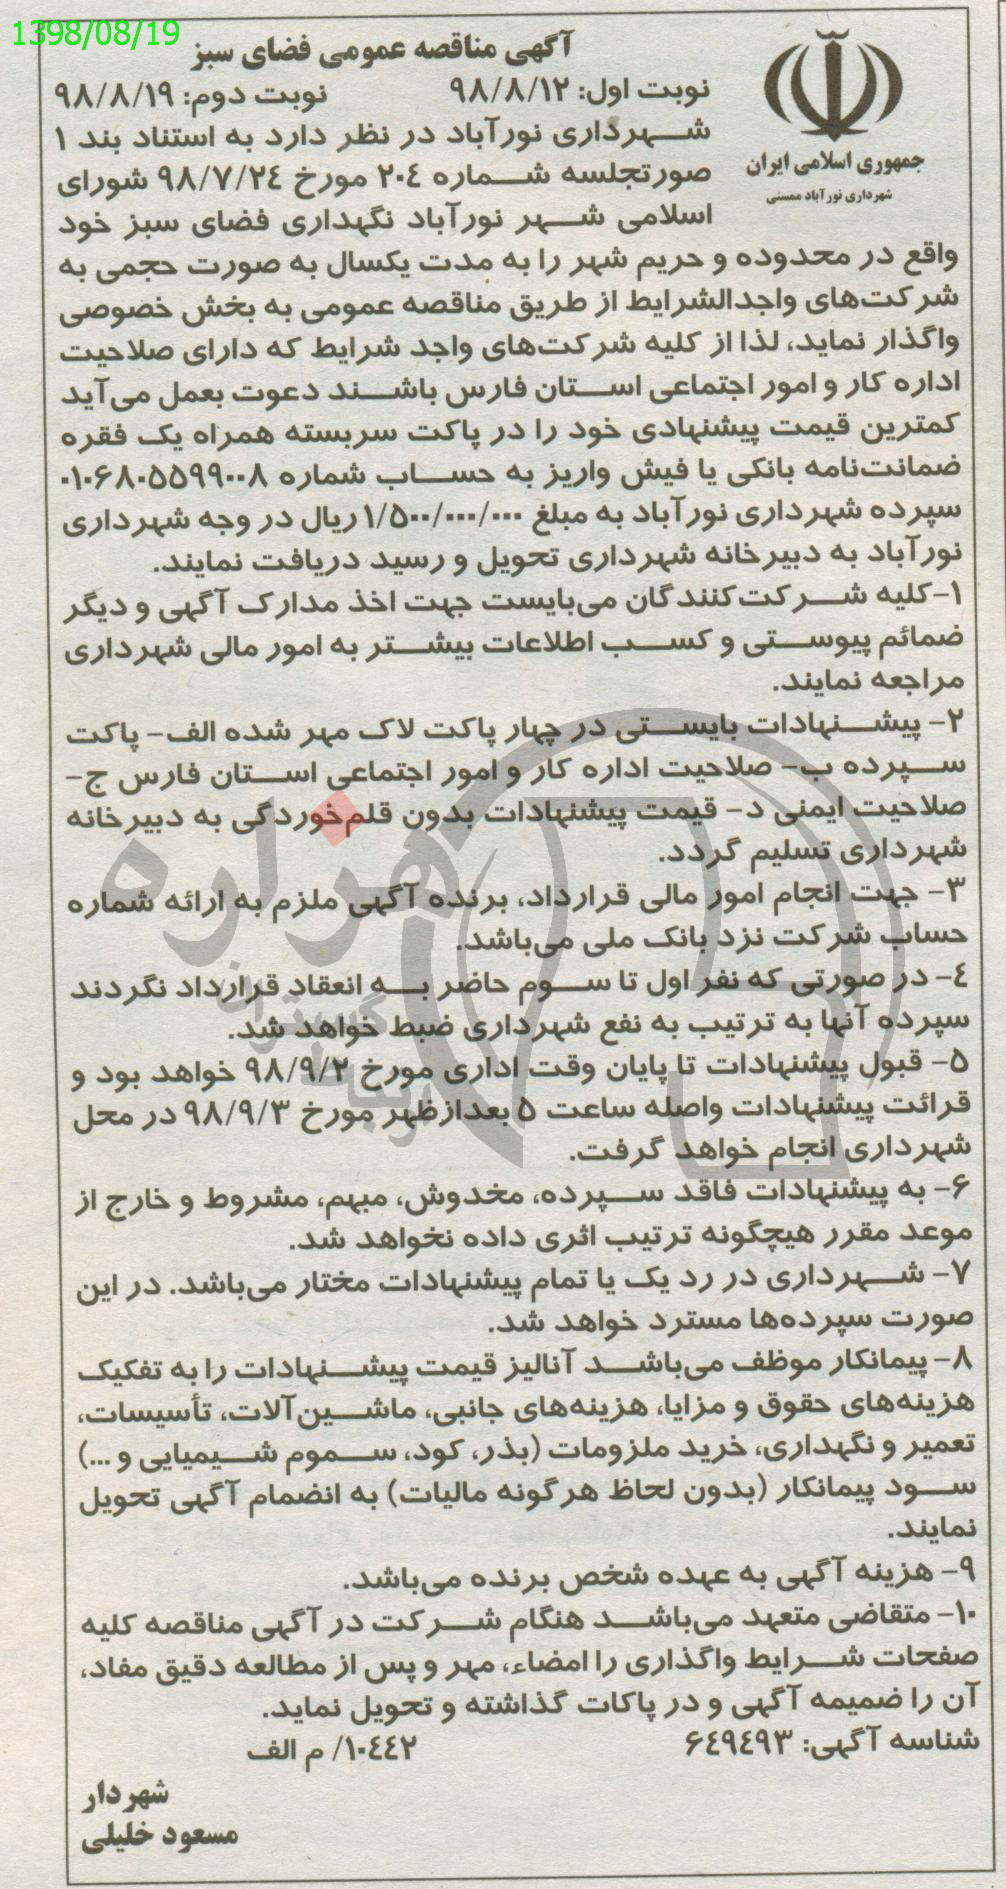 1398/08/19
آگهی مناقصه عمومی فضای سبز
نوبت اول: ۹۸/۸/۱۲ نوبت دوم: ۹۸/۸/۱۹
جمهوری اسلامی ایران
شهرداری نورآباد ممسنی
شهرداری نورآباد در نظر دارد به استناد بند ۱
صورتجلسه شماره ۲۰۴ مورخ ۹۸/۷/۲۴ شورای
اسلامی شهر نورآباد نگهداری فضای سبز خود
واقع در محدوده و حریم شهر را به مدت یکسال به صورت حجمی به
شرکت‌های واجدالشرایط از طریق مناقصه عمومی به بخش خصوصی
واگذار نماید، لذا از کلیه شرکت‌های واجد شرایط که دارای صلاحیت
اداره کار و امور اجتماعی استان فارس باشند دعوت بعمل می‌آید
کمترین قیمت پیشنهادی خود را در پاکت سربسته همراه یک فقره
ضمانت‌نامه بانکی یا فیش واریز به حساب شماره ۰۱۰۶۸۰۵۵۹۹۰۰۸
سپرده شهرداری نورآباد به مبلغ ۱/۵۰۰/۰۰۰/۰۰۰ ریال در وجه شهرداری
نورآباد به دبیرخانه شهرداری تحویل و رسید دریافت نمایند.
۱-کلیه شرکت‌کنندگان می‌بایست جهت اخذ مدارک آگهی و دیگر
ضمائم پیوستی و کسب اطلاعات بیشتر به امور مالی شهرداری
مراجعه نمایند.
۲- پیشنهادات بایستی در چهار پاکت لاک مهر شده الف- پاکت
سپرده ب- صلاحیت اداره کار و امور اجتماعی استان فارس ج-
صلاحیت ایمنی د- قیمت پیشنهادات بدون قلم‌خوردگی به دبیرخانه
شهرداری تسلیم گردد.
۳- جهت انجام امور مالی قرارداد، برنده آگهی ملزم به ارائه شماره
حساب شرکت نزد بانک ملی می‌باشد.
۴- در صورتی که نفر اول تا سوم حاضر به انعقاد قرارداد نگردند
سپرده آنها به ترتیب به نفع شهرداری ضبط خواهد شد.
۵- قبول پیشنهادات تا پایان وقت اداری مورخ ۹۸/۹/۲ خواهد بود و
قرائت پیشنهادات واصله ساعت ۵ بعدازظهر مورخ ۹۸/۹/۳ در محل
شهرداری انجام خواهد گرفت.
۶- به پیشنهادات فاقد سپرده، مخدوش، مبهم، مشروط و خارج از
موعد مقرر هیچگونه ترتیب اثری داده نخواهد شد.
۷- شهرداری در رد یک یا تمام پیشنهادات مختار می‌باشد. در این
صورت سپرده‌ها مسترد خواهد شد.
۸- پیمانکار موظف می‌باشد آنالیز قیمت پیشنهادات را به تفکیک
هزینه‌های حقوق و مزایا، هزینه‌های جانبی، ماشین‌آلات، تأسیسات،
تعمیر و نگهداری، خرید ملزومات (بذر، کود، سموم شیمیایی و ...)
سود پیمانکار (بدون لحاظ هرگونه مالیات) به انضمام آگهی تحویل
نمایند.
۹- هزینه آگهی به عهده شخص برنده می‌باشد.
۱۰- متقاضی متعهد می‌باشد هنگام شرکت در آگهی مناقصه کلیه
صفحات شرایط واگذاری را امضاء، مهر و پس از مطالعه دقیق مفاد،
آن را ضمیمه آگهی و در پاکات گذاشته و تحویل نماید.
شناسه آگهی: ۶۴۹۴۹۳ ۱۰۴۴۲/ م الف
شهردار
مسعود خلیلی
هزاره